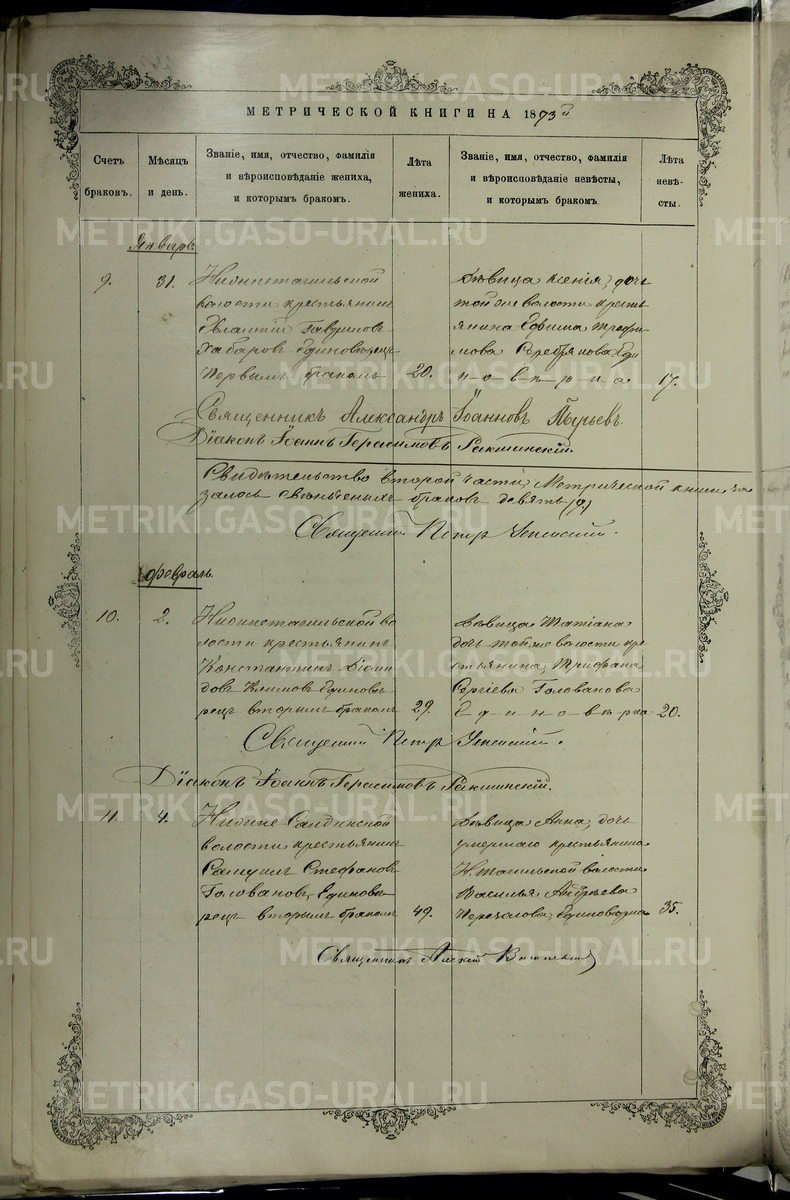 МЕТРИЧЕСКОЙ КНИГИ НА 1873й
Счетъ браковъ.
Мѣсяцъ и день.
Званіе, имя, отчество, фамилія
и вѣроисповѣданіе жениха,
и которымъ бракомъ.
Лѣта жениха.
Званіе, имя, отчество, фамилія
и вѣроисповѣданіе невѣсты,
и которымъ бракомъ.
Лѣта невѣ-
сты.
Январь
9.
31.
Нижнетагильской
волости крестьянинъ
Гавриловъ
Хабаровъ Единовѣрецъ
первымъ бракомъ
20.
Дѣвица Ксенія, дочь
той же волости кресть
янина Трофи
мова Серебрякова, Еди
новѣрка
17.
Священникъ Александръ Іоанновъ
Діаконъ Іоаннъ Герасимовъ
Свидѣтельство второй части Метрической книги
браковъ девять (9)
Священникъ Петръ Успенскій.
Февраль.
10.
2.
Нижнетагильской во
лости крестьянинъ
Константинъ Діоми
довъ Климовъ Единовѣ
рецъ вторымъ бракомъ
29.
Дѣвица Татіана
дочь той же волости кре
стьянина Трифана
Сергіева Голованова
Единовѣрка
20.
Священникъ Петръ Успенскій.
Діаконъ Іоаннъ Герасимовъ
11.
4.
Нижне-Салдинской
волости крестьянинъ
Самуилъ Стефановъ
Головановъ, Единовѣ
рецъ вторымъ бракомъ
49.
Дѣвица Анна, дочь
умершаго крестьянина
Н. тагильской волости
Василья Андреева
Единовѣрка
35.
Священникъ
METRIKI.GASO-URAL.RU